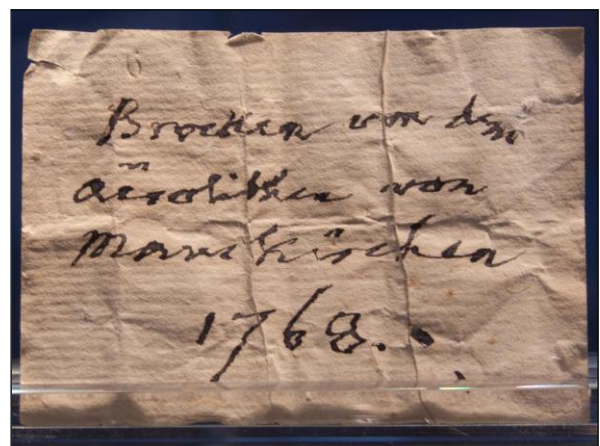 Brocken von dem
Aërolithen von
Mauerkirchen
1768.